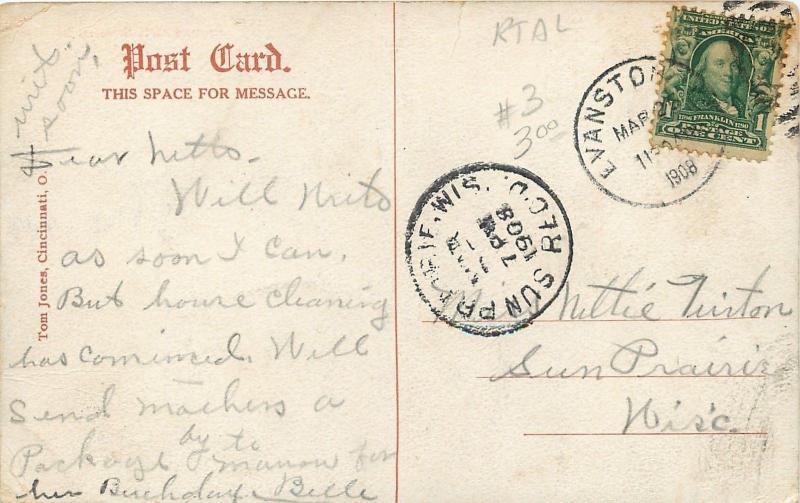 Post Card.
THIS SPACE FOR MESSAGE.
writ
soon,
Dear Netto.
Will Write
as soon I can.
But house cleaning
has comineed. Will
Send mothers a
Package by to
for
her Burchday. Belle
Tom Jones, Cincinnati, O.
RTAL
#3
3.00
EVANSTON
MAR
11
1908
UNITED STATES OF
AMERICA
1
1706 FRANKLIN 1790
POSTAGE
ONE CENT
1
SUN PRAIRIE, WIS.
REC'D.
MAR
7 PM
1908
Miss Nettie
Sun Prairie
Wisc.